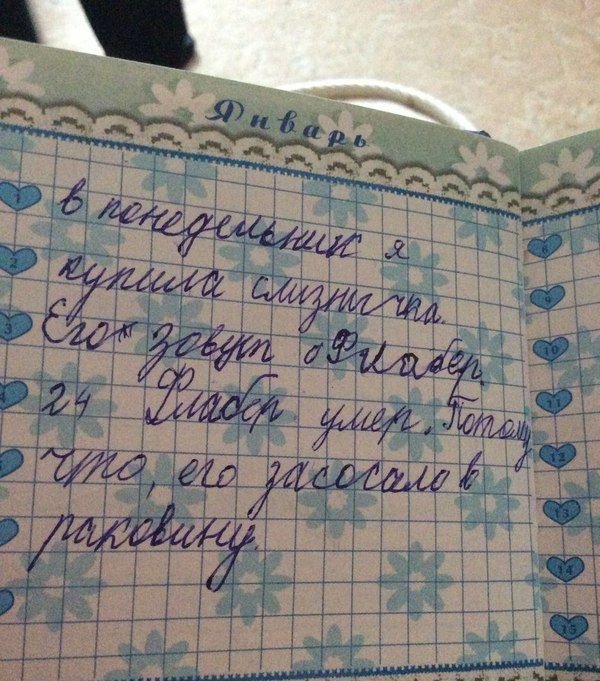 Январь
1
в понедельник я
2
8
купила слизнячка.
9
3
Его зовут Флабер.
10
4
24 Флабер умер. Потому
11
что, его засосало в
12
раковину.
13
14
15